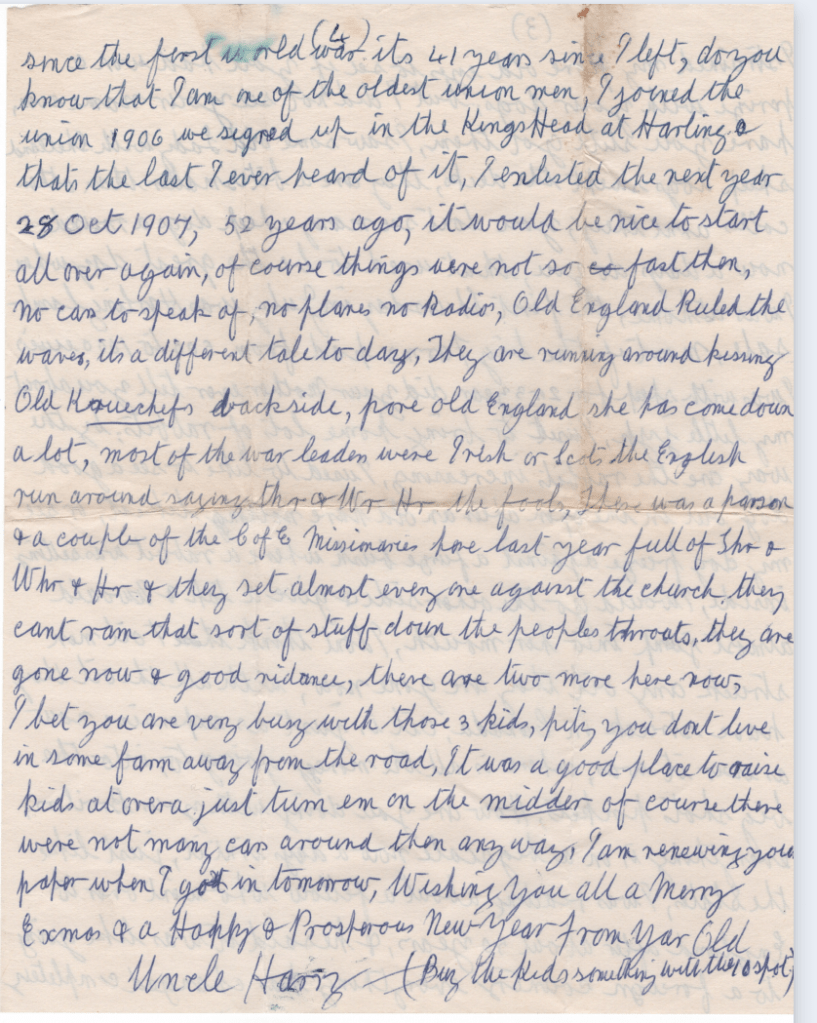 (4)
since the first world war its 41 years since I left, do you
know that I am one of the oldest union men, I joined the
union 1906 we signed up in the Kings Head at Harling &
thats the last I ever heard of it, I enlisted the next year
28 Oct 1907, 52 years ago, it would be nice to start
all over again, of course things were not so fast then,
no cars to speak of, no planes no Radios, Old England Ruled the
waves, its a different tale to day, They are running around kissing
Old Kruechefs backside, pore old England she has come down
a lot, most of the war leaders were Irish or Scots the English
run around saying Thr & Wr Hr the fools, There was a parson
& a couple of the C of E Missionaries here last year full of Thr &
Whr & Hr & they set almost everyone against the church, they
cant ram that sort of stuff down the peoples throats, they are
gone now & good ridance, there are two more here now,
I bet you are very busy with those 3 kids, pity you dont live
in some farm away from the road, It was a good place to raise
kids at overa just turn em on the midder of course there
were not many cars around then any way, I am renewing your
paper when I get in tomorrow, Wishing You all a Merry
Exmas & a Happy & Prosperous New Year From Yar Old
Uncle Harry (Buy the kids something with the 10 spot)